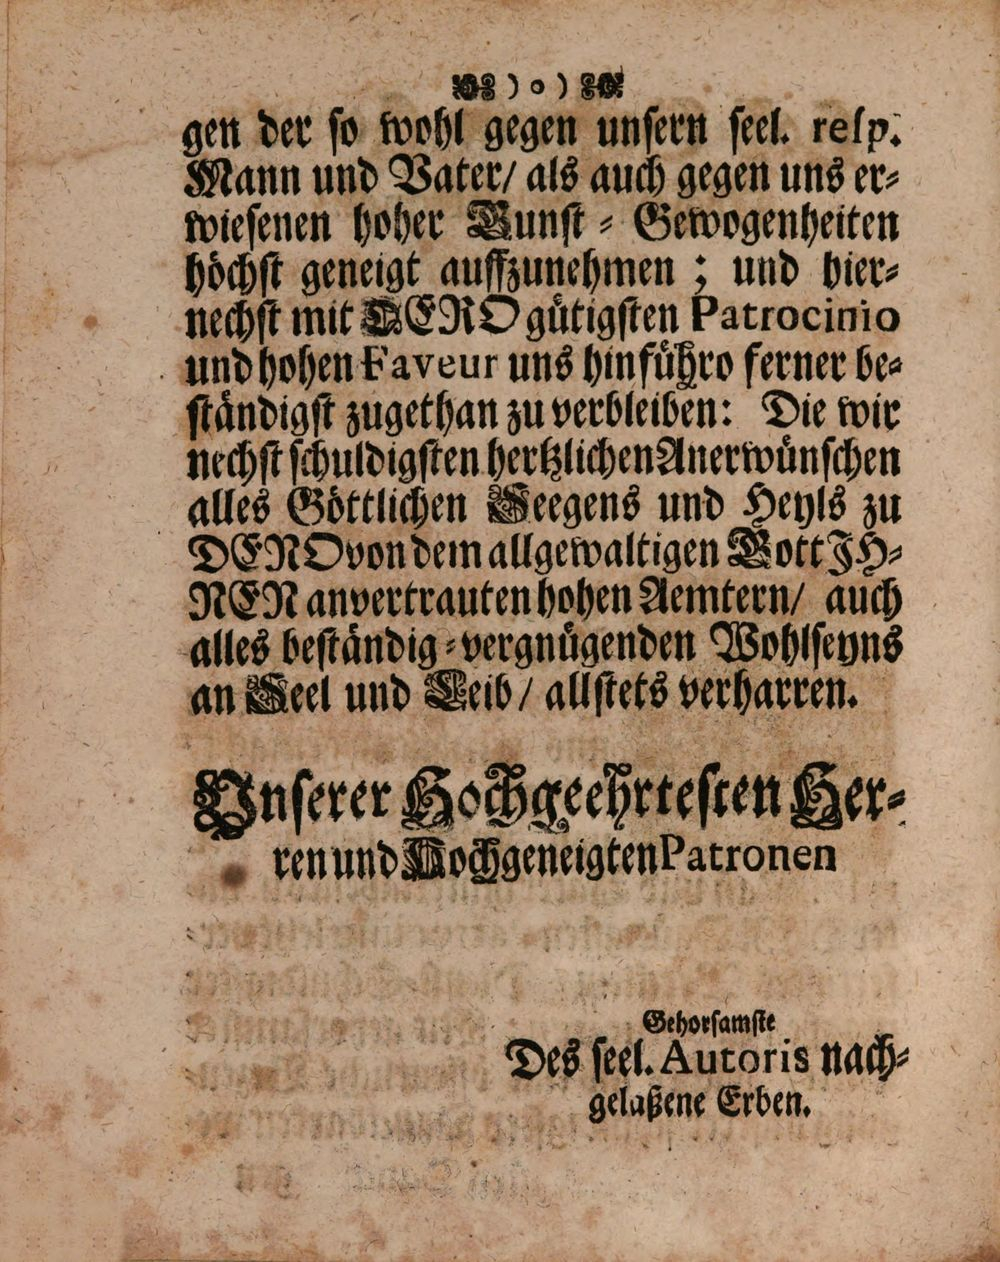 ) o )
gen der so wohl gegen unsern seel. resp.
Mann und Vater/ als auch gegen uns er-
wiesenen hoher Gunst - Gewogenheiten
höchst geneigt auffzunehmen ; und hier-
nechst mit DERO gütigsten Patrocinio
und hohen Faveur uns hinführo ferner be-
ständigst zugethan zu verbleiben: Die wir
nechst schuldigsten hertzlichen Anerwünschen
alles Göttlichen Seegens und Heyls zu
DERO von dem allgewaltigen Gott IH-
NEN anvertrauten hohen Aemtern/ auch
alles beständig-vergnügenden Wohlseyns
an Seel und Leib/ allstets verharren.
Unserer Hochgeehrtesten Her-
ren und Hochgeneigten Patronen
Gehorsamste
Des seel. Autoris nach-
gelaßene Erben.